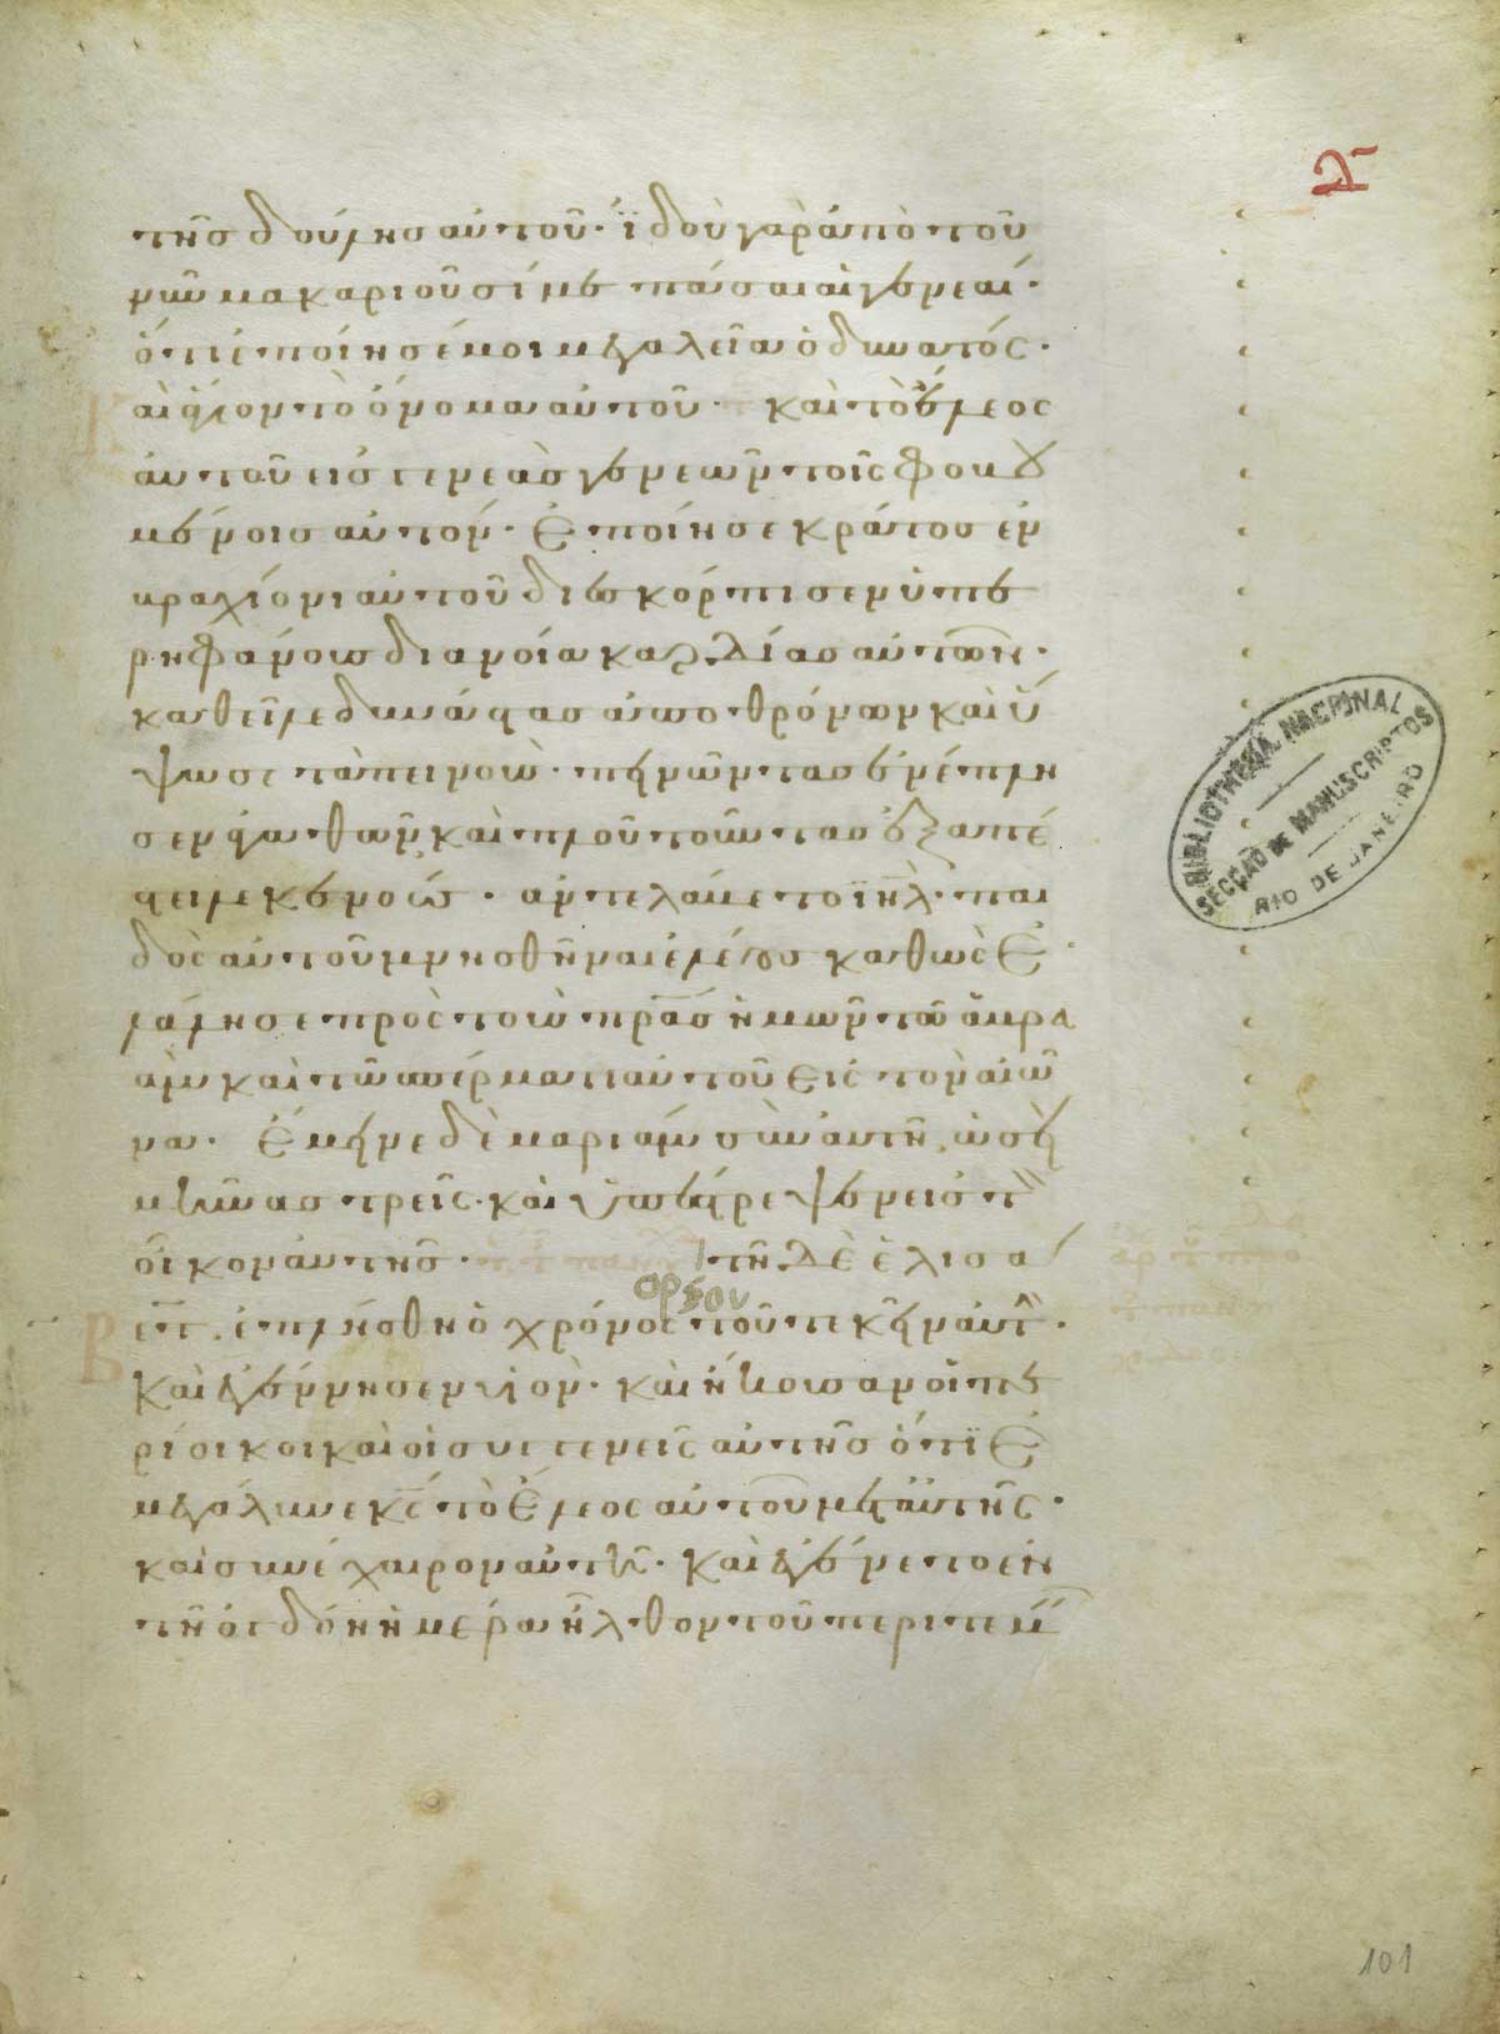 λ
τῆς δούλης αὐτοῦ· ἰδοὺ γὰρ ἀπὸ τοῦ
νῦν μακαριοῦσί με πᾶσαι αἱ γενεαί·
ὅτι ἐποίησέ μοι μεγαλεῖα ὁ δυνατός·
ἅγιον τὸ ὄνομα αὐτοῦ· καὶ τὸ ἔλεος
αὐτοῦ εἰς γενεὰς γενεῶν τοῖς φοβου
μένοις αὐτόν· Ἐποίησε κράτος ἐν
βραχίονι αὐτοῦ διεσκόρπισεν ὑπε
ρηφάνους διανοίᾳ καρδίας αὐτῶν·
καθεῖλε δυνάστας ἀπὸ θρόνων καὶ ὕ
ψωσε ταπεινούς· πεινῶντας ἐνέπλη
σεν ἀγαθῶν καὶ πλουτοῦντας ἐξαπέ
στειλε κενούς· ἀντελάβετο ἰηλ παι
δὸς αὐτοῦ μνησθῆναι ἐλέους καθὼς ἐ
λάλησε πρὸς τοὺς πρας ἡμῶν τῶ ἀβρα
ὰμ καὶ τῶ σπέρματι αὐτοῦ εἰς τὸν αἰῶ
να· Ἔμεινε δὲ μαριὰμ σὺν αὐτῇ ὡσεὶ
μῆνας τρεῖς· καὶ ὑπέστρεψεν εἰς τ
οἶκον αὐτῆς· τῇ δὲ ἐλισά
αρξου
βετ ἐπλήσθη ὁ χρόνος τοῦ τεκεῖν αὐτ·
Καὶ ἐγέννησεν υἱόν· καὶ ἤκουσαν οἱ πε
ρίοικοι καὶ οἱ συγγενεῖς αὐτῆς ὅτι ἐ
μεγάλυνε κς τὸ ἔλεος αὐτοῦ μετ' αὐτῆς·
καὶ συνέχαιρον αὐτῇ· Καὶ ἐγένετο ἐν
τῇ ὀγδόῃ ἡμέρᾳ ἦλθον τοῦ περιτεμ
BIBLIOTHECA NACIONAL
SECÇÃO DE MANUSCRIPTOS
RIO DE JANEIRO
101